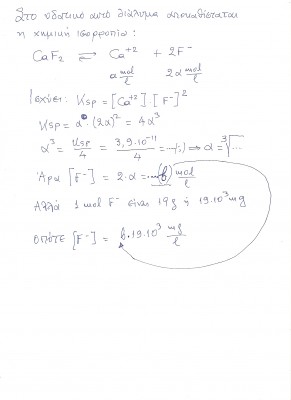 Στο υδατικό αυτό διάλυμα αποκαθίσταται
η χημική ισορροπία:
CaF₂ ⇌ Ca⁺² + 2F⁻
α mol/l 2α mol/l
Ισχύει: Ksp = [Ca⁺²]·[F⁻]²
Ksp = α·(2α)² = 4α³
α³ = Ksp/4 = 3,9·10⁻¹¹/4 = ⇒ α = ∛...
Άρα [F⁻] = 2·α = ...β mol/l
Αλλά 1 mol F⁻ είναι 19g ή 19·10³ mg
οπότε [F⁻] = β·19·10³ mg/l